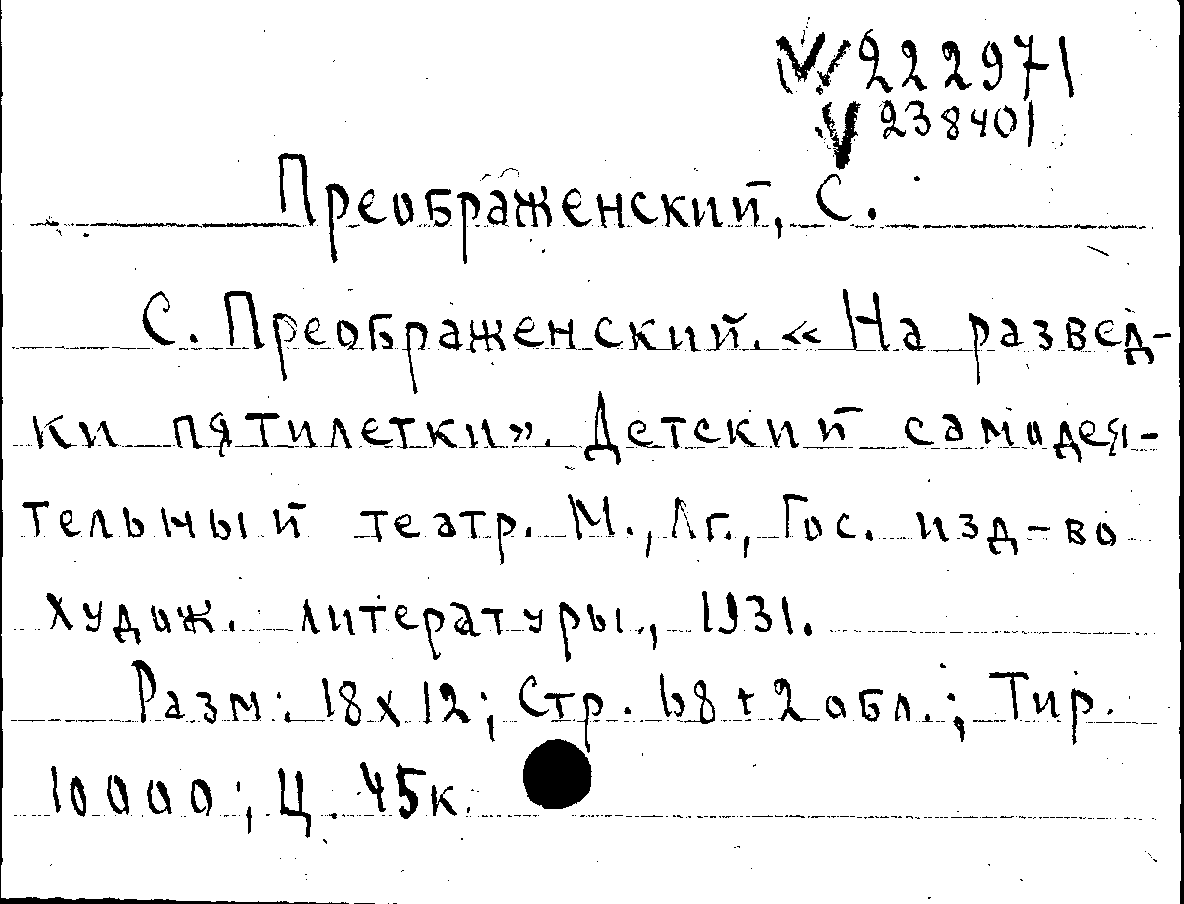 W 222971
V 238401
Преображенский, С.
С. Преображенский. « На развед-
ки пятилетки». Детский самодея-
тельный театр. М., Лг., Гос. изд-во
худож. литературы, 1931.
Разм: 18х12; Стр. 68+2 обл.; Тир.
10000; Ц. 45к.